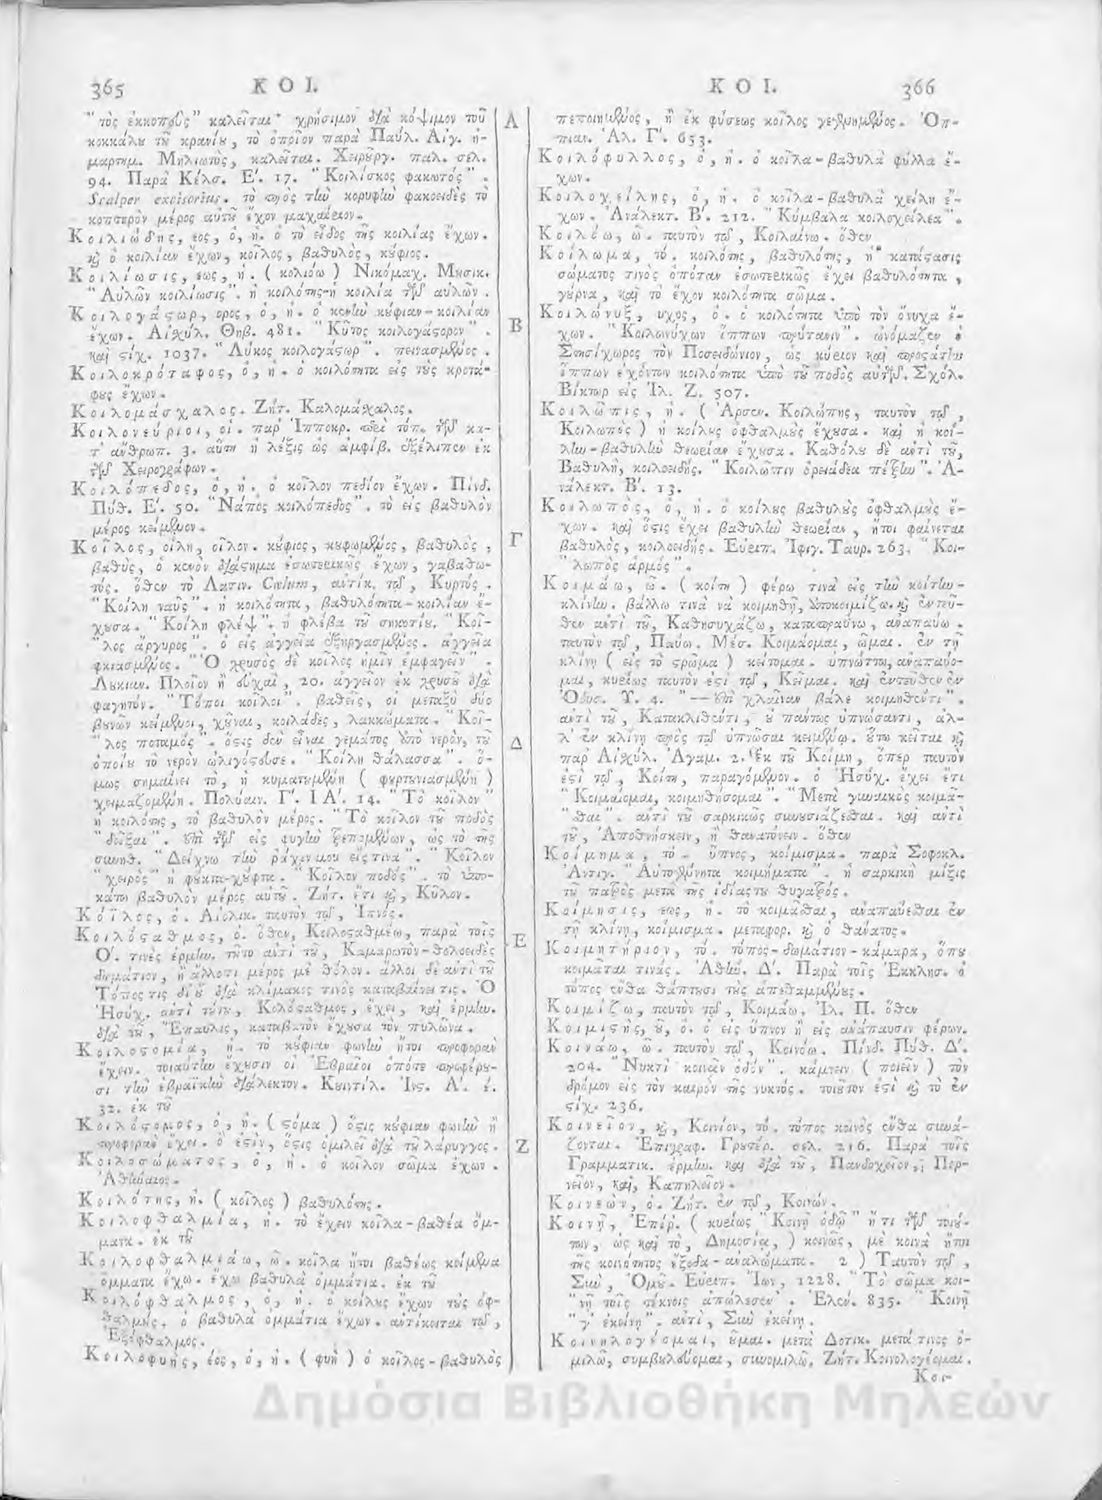 365 ΚΟΙ.
"τὸς ἐκκοπεῖς" καλεῖται· χρήσιμον διὰ κόψιμον τοῦ
κοκκάλου τοῦ κρανίου, τὸ ὁποῖον παρὰ Παύλ. Αἰγ. ἡ-
μαρτημ. Μηλιωτὸς, καλεῖται. Χειρυργ. παλ. σελ.
94. Παρὰ Κέλσ. Ε΄. 17. "Κοιλίσκος φακωτός".
Scalper excisorius. τὸ πρὸς τὴν κορυφὴν φακοειδὲς τὸ
κοπτερὸν μέρος αὐτοῦ ἔχον μαχαίριον.
Κοιλιώδης, εος, ὁ, ἡ. ὁ τὸ εἶδος τῆς κοιλίας ἔχων.
καὶ ὁ κοιλίαν ἔχων, κοῖλος, βαθυλὸς, κούφιος.
Κοιλίωσις, εως, ἡ. (κοιλιόω) Νικόμαχ. Μουσικ.
"Αὐλῶν κοιλίωσις". ἡ κοιλότης-ἡ κοιλία τῶν αὐλῶν.
Κοιλογάστωρ, ορος, ὁ, ἡ. ὁ κενὴν κούφιαν-κοιλίαν
ἔχων. Αἰσχύλ. Θηβ. 481. "Κῦτος κοιλογάστορον".
καὶ στίχ. 1037. "Λύκος κοιλογάστωρ". πεινασμένος.
Κοιλοκρόταφος, ὁ, ἡ. ὁ κοιλότητα εἰς τοὺς κροτά-
φους ἔχων.
Κοιλομάσχαλος. Ζήτ. Καλομάσχαλος.
Κοιλονεύριοι, οἱ. παρ' Ἱπποκρ. περὶ τόπ. τῶν κα-
τ' ἀνθρωπ. 3. αὕτη ἡ λέξις ὡς ἀμφίβ. ἐξέλιπεν ἐκ
τῶν Χειρογράφων.
Κοιλόπεδος, ὁ, ἡ. ὁ κοῖλον πεδίον ἔχων. Πίνδ.
Πύθ. Ε΄. 50. "Νάπος κοιλόπεδος". τὸ εἰς βαθυλὸν
μέρος κείμενον.
Κοῖλος, οίλη, οῖλον. κούφιος, κουφωμένος, βαθυλὸς,
βαθὺς, ὁ κενὸν διάστημα ἐσωτερικῶς ἔχων, γαβαθω-
τός. ὅθεν τὸ Λατιν. Cœlum, ἀντίκ. τῷ, Κυρτός.
"Κοίλη ναῦς". ἡ κοιλότητα, βαθυλότητα-κοιλίαν ἔ-
χουσα. "Κοίλη φλέψ". ἡ φλέβα τοῦ σηκοτίου. "Κοῖ-
"λος ἄργυρος". ὁ εἰς ἀγγεῖα ἐξηργασμένος. ἀγγεῖα
φκιασμένος. "Ὁ χρυσὸς δὲ κοῖλος ἡμῖν ἐμφαγεῖν".
Λουκιαν. Πλοῖον ἢ εὐχαὶ, 20. ἀγγεῖον ἐκ χρυσοῦ διὰ
φαγητόν. "Τόποι κοῖλοι". βαθεῖς, οἱ μεταξὺ δύο
βουνῶν κείμενοι, χοῦναι, κοιλάδες, λακκώματα. "Κοῖ-
"λος ποταμός". ὅστις δὲν εἶναι γεμάτος ἀπὸ νερὸν, τοῦ
ὁποίου τὸ νερὸν ὠλιγόστευσε. "Κοίλη θάλασσα". ὅ-
μως σημαίνει τὸ, ἡ κυματουμένη (φουρτουνιασμένη)
χειμαζομένη. Πολύαιν. Γ΄. ΙΑ΄. 14. "Τὸ κοῖλον"
ἡ κοιλότης, τὸ βαθυλὸν μέρος. "Τὸ κοῖλον τοῦ ποδὸς
"δεῖξαι". ἐπὶ τῶν εἰς φυγὴν τρεπομένων, ὡς τὸ τῆς
συνηθ. "Δείχνω τὴν ράχιν μου εἰς τινα". "Κοῖλον
"χειρὸς" ἡ φούκτα-χούφτα. "Κοῖλον ποδός". τὸ ὑπο-
κάτω βαθυλὸν μέρος αὐτοῦ. Ζήτ. ἔτι καὶ, Κῦλον.
Κόϊλος, ὁ. Αἰολικ. ταυτὸν τῷ, Ἰπνός.
Κοιλόσταθμος, ὁ. ὅθεν, Κοιλοσταθμέω, παρὰ τοῖς
Ο΄. τινὲς ἑρμην. τοῦτο ἀντὶ τοῦ, Καμαρωτὸν-θολοειδὲς
δωμάτιον, ἢ ἄλλοτι μέρος μὲ θόλον. ἄλλοι δὲ ἀντὶ τοῦ
Τόπος τις δι' οὗ διὰ κλίμακος τινὸς καταβαίνει τις. Ὁ
Ἡσύχ. ἀντὶ τούτου, Κολόσταθμος, ἔχει, καὶ ἑρμην.
διὰ τοῦ, Ἔπαυλις, καταβατὸν ἔχουσα τὸν πυλῶνα.
Κοιλοστομία, ἡ. τὸ κούφιαν φωνὴν ἤτοι προφορὰν
ἔχειν. τοιαύτην ἔχουσιν οἱ Ἑβραῖοι ὁπότε προφέρου-
σι τὴν ἑβραϊκὴν διάλεκτον. Κυιντίλ. Ἰνς. Α΄. έ.
32. ἐκ τοῦ
Κοιλόστομος, ὁ, ἡ. (στόμα) ὅστις κούφιαν φωνὴν ἢ
προφορὰν ἔχει. ὅ ἐστιν, ὅστις ὁμιλεῖ διὰ τοῦ λάρυγγος.
Κοιλοσώματος, ὁ, ἡ. ὁ κοῖλον σῶμα ἔχων.
Ἀθήναιος.
Κοιλότης, ἡ. (κοῖλος) βαθυλότης.
Κοιλοφθαλμία, ἡ. τὸ ἔχειν κοῖλα-βαθέα ὄμ-
ματα. ἐκ τοῦ
Κοιλοφθαλμιάω, ῶ. κοῖλα ἤτοι βαθέως κείμενα
ὄμματα ἔχω. ἔχω βαθυλὰ ὀμμάτια. ἐκ τοῦ
Κοιλόφθαλμος, ὁ, ἡ. ὁ κοίλους ἔχων τοὺς ὀφ-
θαλμοὺς, ὁ βαθυλὰ ὀμμάτια ἔχων. ἀντίκειται τῷ,
Ἐξόφθαλμος.
Κοιλοφυὴς, έος, ὁ, ἡ. (φυὴ) ὁ κοῖλος-βαθυλὸς
Α
Β
Γ
Δ
Ε
Ζ
ΚΟΙ. 366
πεποιημένος, ἢ ἐκ φύσεως κοῖλος γεγενημένος. Ὀπ-
πιαν. Ἁλ. Γ΄. 653.
Κοιλόφυλλος, ὁ, ἡ. ὁ κοῖλα-βαθυλὰ φύλλα ἔ-
χων.
Κοιλοχείλης, ὁ, ἡ. ὁ κοῖλα-βαθυλὰ χείλη ἔ-
χων. Ἀνάλεκτ. Β΄. 212. "Κύμβαλα κοιλοχείλεα".
Κοιλόω, ῶ. ταυτὸν τῷ, Κοιλαίνω. ὅθεν
Κοίλωμα, τό. κοιλότης, βαθυλότης, ἡ κατάστασις
σώματος τινὸς ὁπόταν ἐσωτερικῶς ἔχει βαθυλότητα,
γούρνα, καὶ τὸ ἔχον κοιλότητα σῶμα.
Κοιλώνυξ, υχος, ὁ. ὁ κοιλότητα ὑπὸ τὸν ὄνυχα ἔ-
χων. "Κοιλωνύχων ἵππων πρύτανιν". ὠνόμαζεν ὁ
Στησίχωρος τὸν Ποσειδώνιον, ὡς κύριον καὶ προστάτην
ἵππων ἐχόντων κοιλότητα ὑπὸ τοῦ ποδὸς αὐτῶν. Σχόλ.
Βίκτωρ εἰς Ἰλ. Ζ. 507.
Κοιλῶπις, ἡ. (Ἀρσεν. Κοιλώπης, ταυτὸν τῷ,
Κοιλωπὸς) ἡ κοίλους ὀφθαλμοὺς ἔχουσα. καὶ ἡ κοί-
λην-βαθυλὴν θεωρίαν ἔχουσα. Καθόλου δὲ ἀντὶ τοῦ,
Βαθυλὴ, κοιλοειδής. "Κοιλώπιν ὀρειάδεα πέτρην". Ἀ-
νάλεκτ. Β΄. 13.
Κοιλωπὸς, ὁ, ἡ. ὁ κοίλους βαθυλοὺς ὀφθαλμοὺς ἔ-
χων. καὶ ὅστις ἔχει βαθυλὴν θεωρίαν, ἤτοι φαίνεται
βαθυλὸς, κοιλοειδής. Εὐριπ. Ἰφιγ. Ταυρ. 263. "Κοι-
"λωπὸς ἀρμός".
Κοιμάω, ῶ. (κοίτη) φέρω τινὰ εἰς τὴν κοίτην-
κλίνην. βάλλω τινὰ νὰ κοιμηθῇ, ἀποκοιμίζω. καὶ ἐντεῦ-
θεν ἀντὶ τοῦ, Καθησυχάζω, καταπραΰνω, ἀναπαύω.
ταυτὸν τῷ, Παύω. Μέσ. Κοιμάομαι, ῶμαι. ἐν τῇ
κλίνῃ (εἰς τὸ στρῶμα) κείτομαι. ὑπνώττω, ἀναπαύο-
μαι, κυρίως ταυτὸν ἐστὶ τῷ, Κεῖμαι. καὶ ἐντεῦθεν ἐν
Ὀδυσ. Υ. 4. "—ἐπὶ χλαῖναν βάλε κοιμηθέντι".
ἀντὶ τοῦ, Κατακλιθέντι, οὐ πάντως ὑπνώσαντι, ἀλ-
λ' ἐν κλίνῃ πρὸς τῷ ὑπνῶσαι κειμένῳ. οὕτω κεῖται καὶ
παρ' Αἰσχύλ. Ἀγαμ. 2. Ἐκ τοῦ Κοίμη, ὅπερ ταυτὸν
ἐστὶ τῷ, Κοίτη, παραγόμενον. ὁ Ἡσύχ. ἔχει ἔτι
"Κοιμαίομαι, κοιμηθήσομαι". "Μετὰ γυναικὸς κοιμᾶ-
"σθαι". ἀντὶ τοῦ σαρκικῶς συνουσιάζεσθαι. καὶ ἀντὶ
τοῦ, Ἀποθνήσκειν, ἢ θανατόνειν. ὅθεν
Κοίμημα, τό. ὕπνος, κοίμισμα. παρὰ Σοφοκλ.
Ἀντιγ. "Αὐτογένητα κοιμήματα". ἡ σαρκικὴ μίξις
τοῦ πατρὸς μετὰ τῆς ἰδίας του θυγατρός.
Κοίμησις, εως, ἡ. τὸ κοιμᾶσθαι, ἀναπαύεσθαι ἐν
τῇ κλίνῃ, κοίμισμα. μεταφορ. καὶ ὁ θάνατος.
Κοιμητήριον, τό. τόπος-δωμάτιον-κάμαρα, ὅπου
κοιμᾶται τινάς. Ἀθην. Δ΄. Παρὰ τοῖς Ἐκκλησ. ὁ
τόπος ἔνθα θάπτουσι τοὺς ἀπεθαμμένους.
Κοιμίζω, ταυτὸν τῷ, Κοιμάω. Ἰλ. Π. ὅθεν
Κοιμιστὴς, οῦ, ὁ. ὁ εἰς ὕπνον ἢ εἰς ἀνάπαυσιν φέρων.
Κοινάω, ῶ. ταυτὸν τῷ, Κοινόω. Πίνδ. Πύθ. Δ΄.
204. "Νυκτὶ κοινᾶν ὁδόν". κάμνειν (ποιεῖν) τὸν
δρόμον εἰς τὸν καιρὸν τῆς νυκτός. τοιοῦτον ἐστὶ καὶ τὸ ἐν
στίχ. 236.
Κοινεῖον, καὶ, Κοινίον, τό. τόπος κοινὸς ἔνθα συνά-
ζονται. Ἐπιγραφ. Γρυτέρ. σελ. 216. Παρὰ τοῖς
Γραμματικ. ἑρμην. καὶ διὰ τοῦ, Πανδοχεῖον, Πορ-
νεῖον, καὶ, Καπηλεῖον.
Κοινεὼν, ὁ. Ζήτ. ἐν τῷ, Κοινών.
Κοινῇ, Ἐπίρ. (κυρίως "Κοινῇ ὁδῷ" ἤ τι τῶν τοιού-
των, ὡς καὶ τὸ, Δημοσίᾳ,) κοινῶς, μὲ κοινὰ ἤτοι
τῆς κοινότητος ἔξοδα-ἀναλώματα. 2) Ταυτὸν τῷ,
Σὺν, Ὁμοῦ. Εὐριπ. Ἴων, 1228. "Τὸ σῶμα κοι-
"νῇ τοῖς τέκνοις ἀπώλεσεν". Ἑλέν. 835. "Κοινῇ
"γ' ἐκείνῃ". ἀντὶ, Σὺν ἐκείνῃ.
Κοινηλογέομαι, οῦμαι. μετὰ Δοτικ. μετά τινος ὁ-
μιλῶ, συμβουλεύομαι, συνομιλῶ. Ζήτ. Κοινολογέομαι.
Κοι-
Δημόσια Βιβλιοθήκη Μηλεών